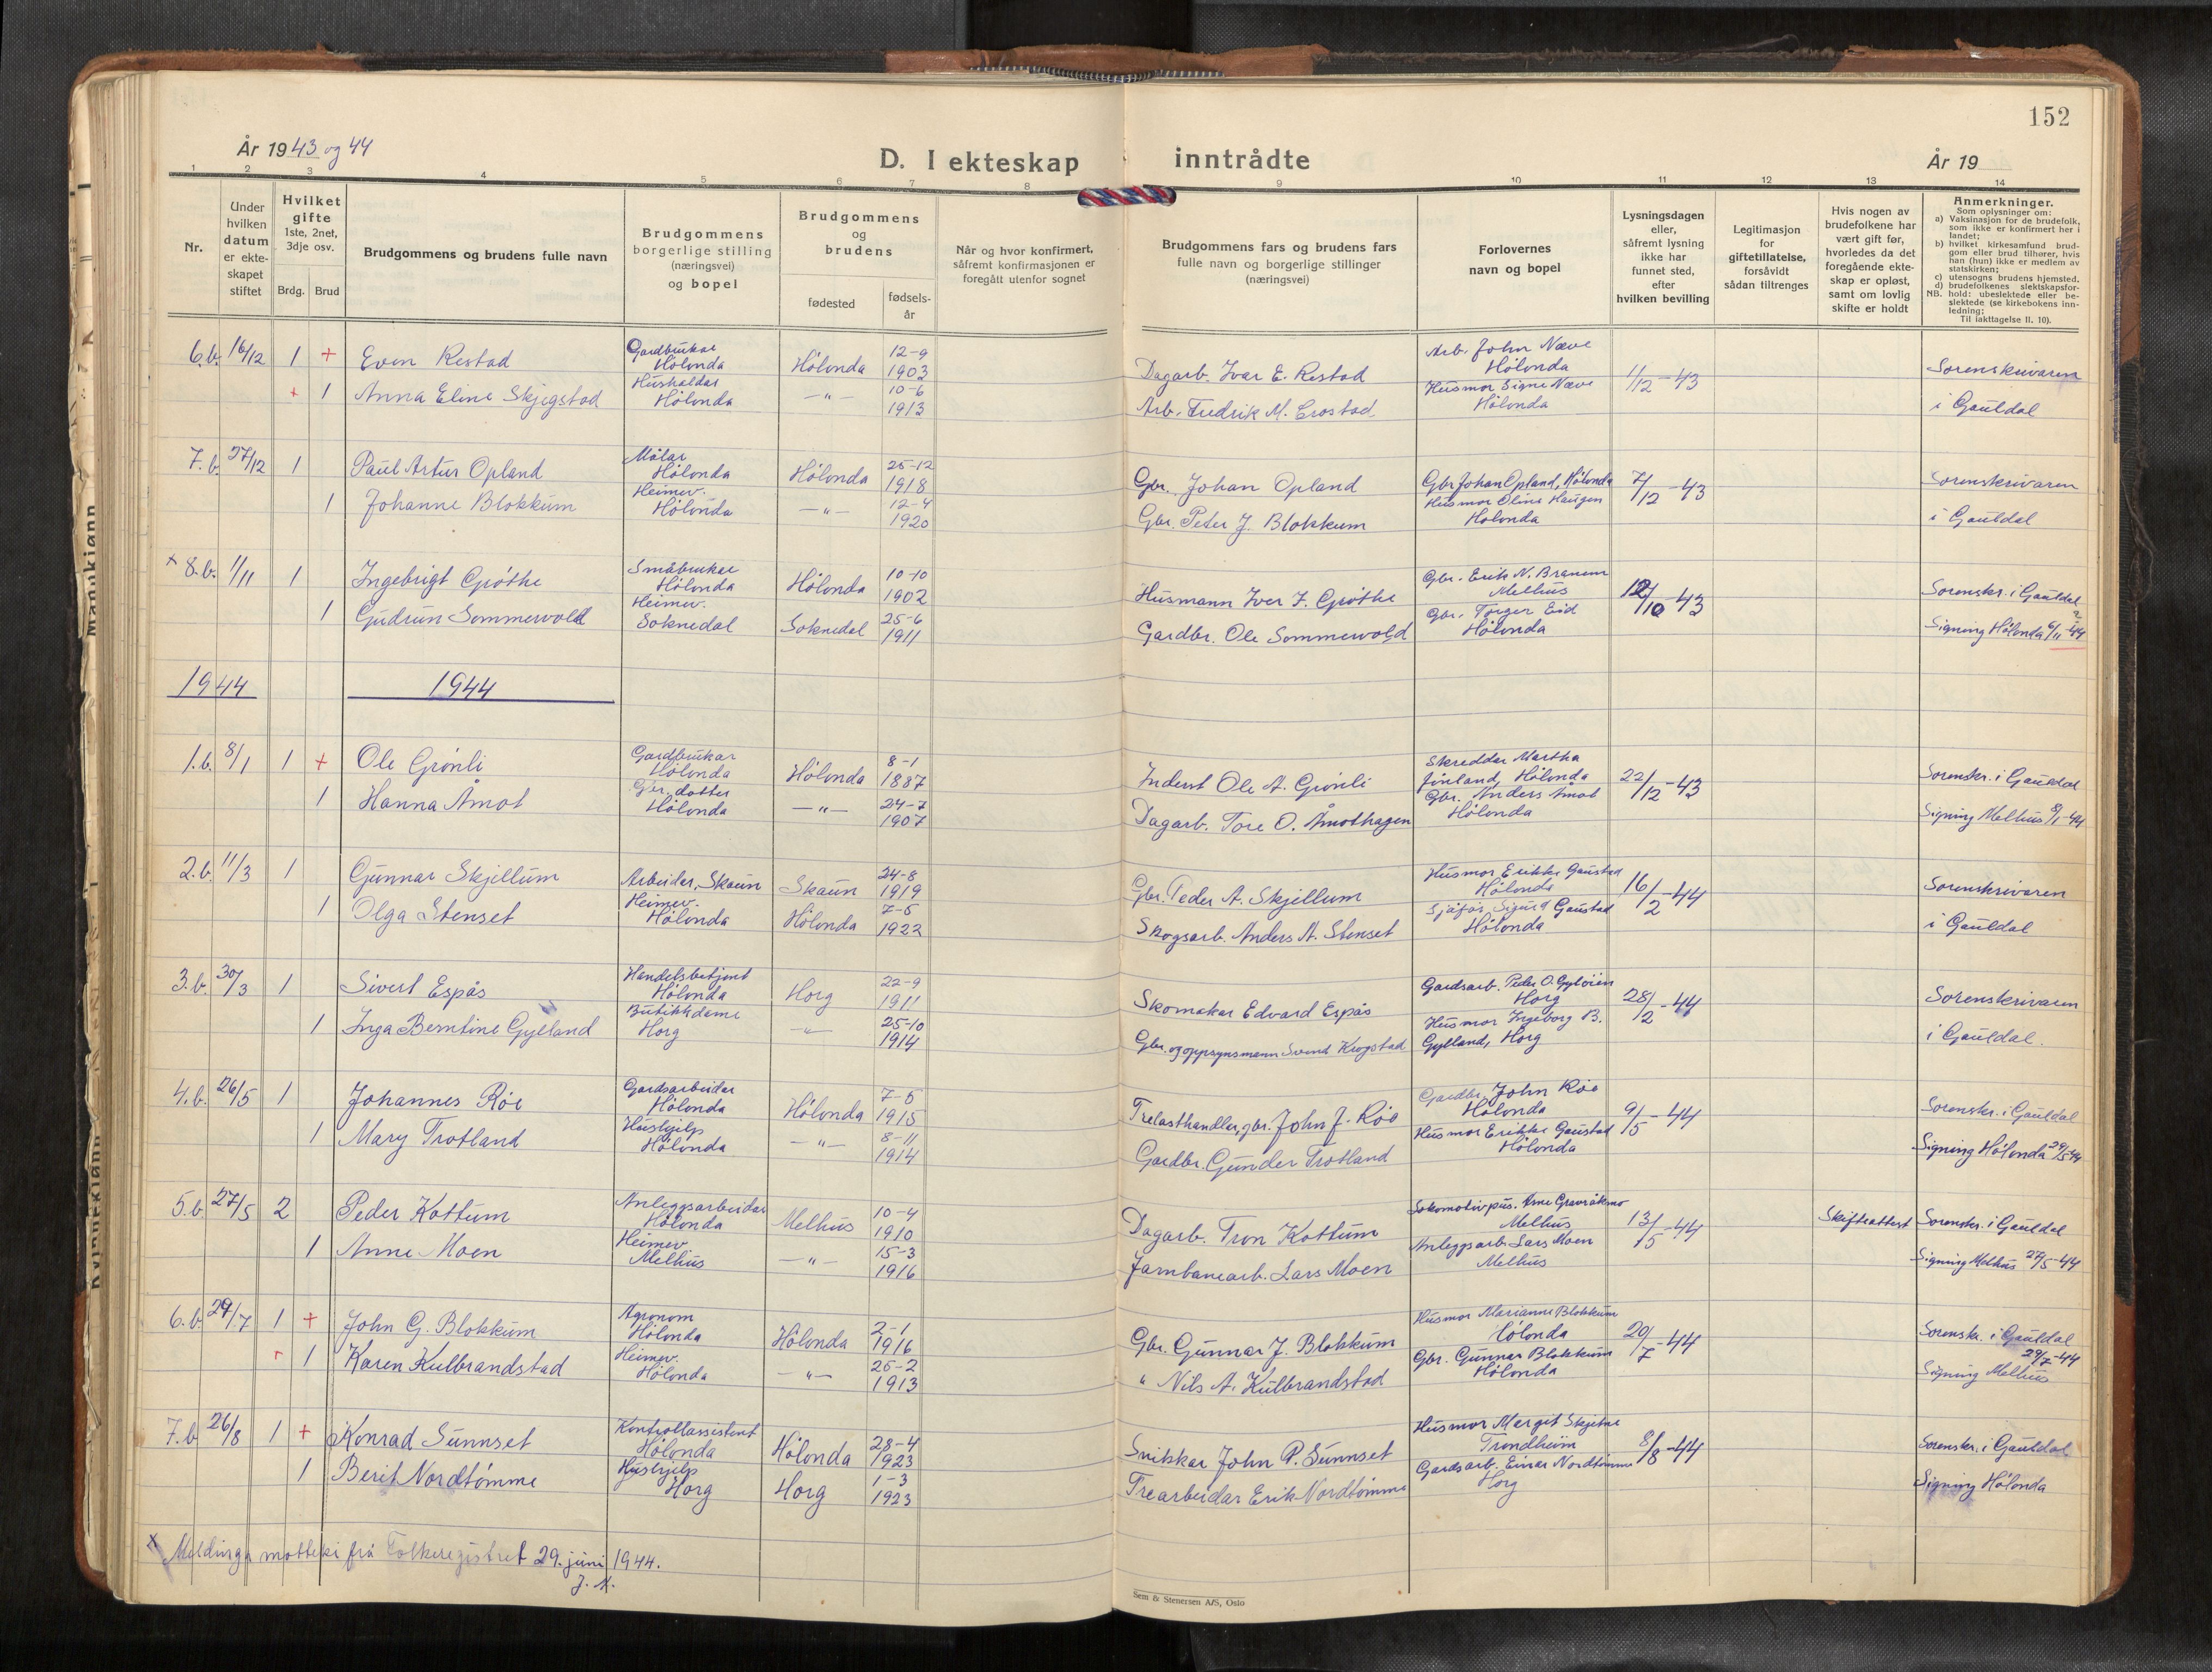 152
År 1943 og 44
D. I ekteskap inntrådte
År 19
1 2 3 4 5 6 7 8 9 10 11 12 13 14
Nr.
Under hvilken datum er ekte-skapet stiftet
Hvilket gifte 1ste, 2net, 3dje osv.
Brdg. Brud
Brudgommens og brudens fulle navn
Brudgommens borgerlige stilling (næringsvei) og bopel
Brudgommens og brudens
fødested
fødsels-år
Når og hvor konfirmert, såfremt konfirmasjonen er foregått utenfor sognet
Brudgommens fars og brudens fars fulle navn og borgerlige stillinger (næringsvei)
Forlovernes navn og bopel
Lysningsdagen eller, såfremt lysning ikke har funnet sted, efter hvilken bevilling
Legitimasjon for giftetillatelse, forsåvidt sådan tiltrenges
Hvis nogen av brudefolkene har vært gift før, hvorledes da det foregående ekte-skap er opløst, samt om lovlig skifte er holdt
Anmerkninger.
Som oplysninger om:
a) Vaksinasjon for de brudefolk, som ikke er konfirmert her i landet;
b) hvilket kirkesamfund brud-gom eller brud tilhører, hvis han (hun) ikke er medlem av statskirken;
c) utensogns brudens hjemsted.
d) brudefolkenes slektskapsfor-hold: ubeslektede eller be-slektede (se kirkebokens inn-ledning;
NB. Til iakttagelse II. 10).
6.b. 16/12 1 + Even Restad Gardbrukar Hølonda Hølonda 12-9 1903 Dagarb. Ivar E. Restad Arb. John Næve Hølonda 1/12-43 Sorenskrivaren
+ 1 Anna Eline Skjegstad Hushaldar Hølonda —"— 10-6 1913 Arb. Fredrik M. Crostad. Husmor Signe Næve Hølonda i Gauldal
7.b. 27/12 1 Paul Artur Opland Målar Hølonda Hølonda 25-12 1918 Gbr. Johan Opland Gbr Johan Opland, Hølonda 7/12-43 Sorenskrivaren
1 Johanne Blokkum Heimev. Hølonda —"— 12-4 1920 Gbr. Peter J. Blokkum Husmor Oline Haugen Hølonda i Gauldal
× 8.b. 11/11 1 Ingebrigt Grøthe Småbrukar Hølonda Hølonda 10-10 1902 Husmann Iver J. Grøthe Gbr. Erik N. Branem Melhus 12/10-43 Sorenskr. i Gauldal
1 Gudrun Sommervold Heimev. Soknedal Soknedal 25-6 1911 Gardbr. Ole Sommervold Gbr. Torger Eid Hølonda Signing Hølonda 6/11-44 ?
1944 1944
1.b. 8/1 1 + Ole Grønli Gardbrukar Hølonda Hølonda 8-1 1887 Inderst Ole A. Grønli Skredder Martha Finland, Hølonda 22/12-43 Sorenskr. i Gauldal
1 Hanna Åmot Gbr. dotter Hølonda —"— 24-7 1907 Dagarb. Tore O. Åmothagen Gbr. Anders Åmot Hølonda Signing Melhus 8/1-44
2.b. 11/3 1 Gunnar Skjellum Arbeidar, Skaun Skaun 24-8 1919 Gbr. Peder A. Skjellum Husmor Erikke Gaustad Hølonda 16/2-44 Sorenskrivaren
1 Olga Stenset Heimev. Hølonda Hølonda 7-5 1922 Skogsarb. Anders A. Stenset Sjåfør Sigurd Gaustad Hølonda i Gauldal
3.b. 30/3 1 Sivert Espås Handelsbetjent Hølonda Horg 22-9 1911 Skomakar Edvard Espås Gardsarb. Peder O. Gyløien Horg 28/2-44 Sorenskrivaren
1 Inga Berntine Gylland Butikkdame Horg —"— 25-10 1914 Gbr. og oppsynsmann Svend Krogstad Husmor Ingeborg B. Gylland, Horg i Gauldal.
4.b. 26/5 1 Johannes Røe Gardsarbeidar Hølonda Hølonda 7-5 1915 Trelasthandler, gbr. John J. Røe Gardbr. John Røe Hølonda 9/5-44 Sorenskr. i Gauldal
1 Mary Trotland Hushjelp Hølonda —"— 8-11 1914 Gardbr. Gunder Trotland Husmor Erikke Gaustad Hølonda Signing Hølonda 29/5-44
5.b. 27/5 2 Peder Kottum Anleggsarbeidar Hølonda Melhus 10-4 1910 Dagarb. Tron Kottum Lokomotivpus. Arne Gravråkmo Melhus 13/5-44 Skifteattest Sorenskr. i Gauldal
1 Anne Moen Heimev Melhus —"— 15-3 1916 Jarnbanearb. Lars Moen Anleggsarb. Lars Moen Melhus Signing Melhus 27/5-44
6.b. 29/7 1 + John G. Blokkum Agronom Hølonda Hølonda 2-1 1916 Gbr. Gunnar J. Blokkum Husmor Marianne Blokkum Hølonda 20/7-44 Sorenskr. i Gauldal
1 Karen Kulbrandstad Heimev. Hølonda —"— 26-2 1913 " Nils A. Kulbrandstad Gbr. Gunnar Blokkum Hølonda Signing Melhus 29/7-44
7.b 26/8 1 + Konrad Sunnset Kontrollassistent Hølonda Hølonda 28-4 1923 Snikkar John P. Sunnset Husmor Margit Skjetne Trondheim 8/8-44 Sorenskr. i Gauldal
1 Berit Nordtømme Hushjelp Horg Horg 1-3 1923 Trearbeidar Erik Nordtømme Gardsarb. Einar Nordtømme Horg Signing Hølonda
× Meldinga motteki frå Folkeregistret 29. juni 1944.
J. N.
Sem & Stenersen A/S, Oslo
Mannkjønn
Kvinnekjønn